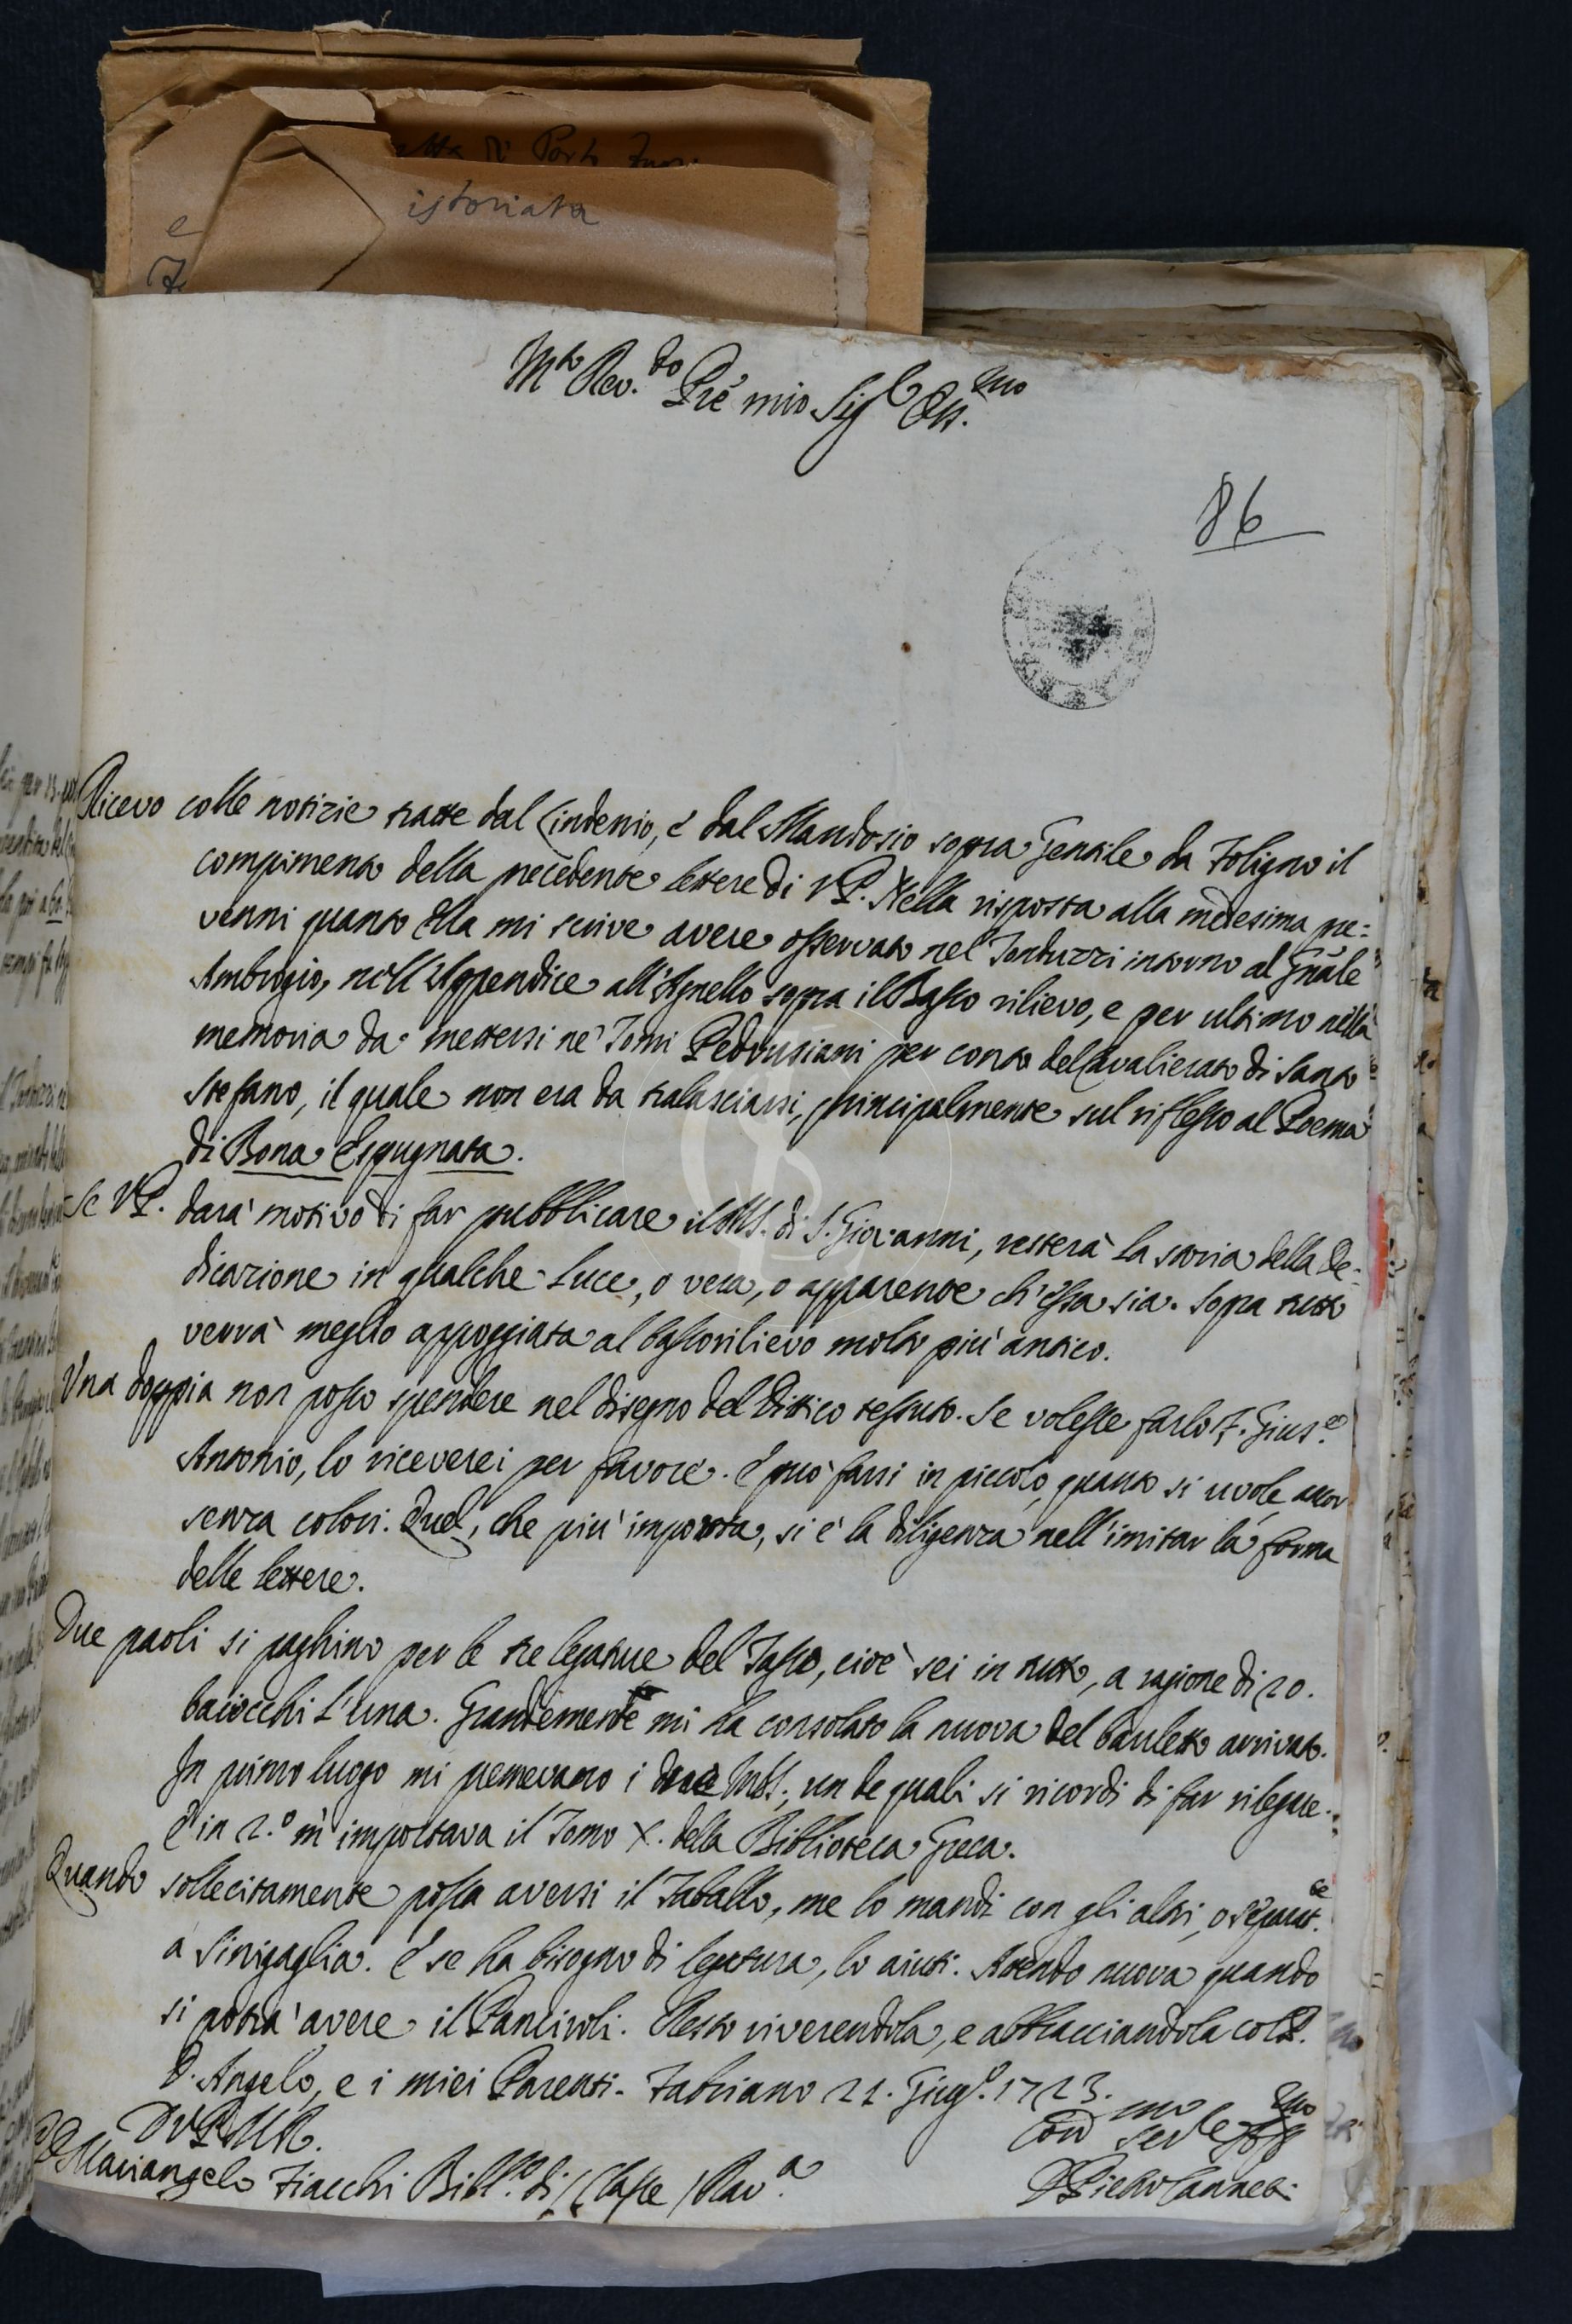 etta di Porto Fuori
istoriata
e
F
M.to Rev.do Pre mio Sig.r Oss.mo
86
Ricevo colle notizie tratte dal Lindenio, e dal Mandosio sopra Gentile da Foligno il
compimento della precedente lettere di VP. Nella risposta alla medesima pre=
venni quanto Ella mi scrive avere osservato nel Tonduzzi intorno al Gñale
Ambrogio, nell'Appendice all'Agnello sopra il Basso rilievo, e per ultimo nella
memoria da mettersi ne' Tomi Pedrusiani per conto del Cavalierato di Santo
Stefano, il quale non era da tralasciarsi, principalmente sul riflesso al Poema
di Bona Espugnata.
Se VP. darà motivo di far pubblicare il MS. di S. Giovanni, resterà la storia della De=
dicazione in qualche luce, o vera, o apparente ch'essa sia. Sopra tutto
verrà meglio appoggiata al bassorilievo molto più antico.
Una doppia non posso spendere nel disegno del Dittico tessuto. Se volesse farlo F. Gius.e
Antonio, lo riceverei per favore. E può farsi in piccolo quanto si vuole, ancor
senza colori. Quel, che più importa, si è la diligenza nell'imitar la forma
delle lettere.
Due paoli si paghino per le tre legature del Tasso, cioè sei in tutto, a ragione di 20.
baiocchi l'una. Grandemente mi ha consolato la nuova del bauletto arrivato.
In primo luogo mi premevano i due MSS., un de quali si ricordi di far rilegare.
E in 2.º m'importava il Tomo X. della Biblioteca Greca.
Quando sollecitamente possa aversi il Taballo, me lo mandi con gli altri, o separat.te
a Sinigaglia. E se ha bisogno di legatura, lo aiuti. Attendo nuova quando
si potrà avere il Panciroli. Resto riverendola, e abbracciandola col P.
D. Angelo, e i miei Parenti. Fabriano 21. Giug.º 1723.
D VP.MR.
P. D. Mariangelo Fiacchi Bibl.o di Classe Rav.a
mo mo
D. Pietro Canneti